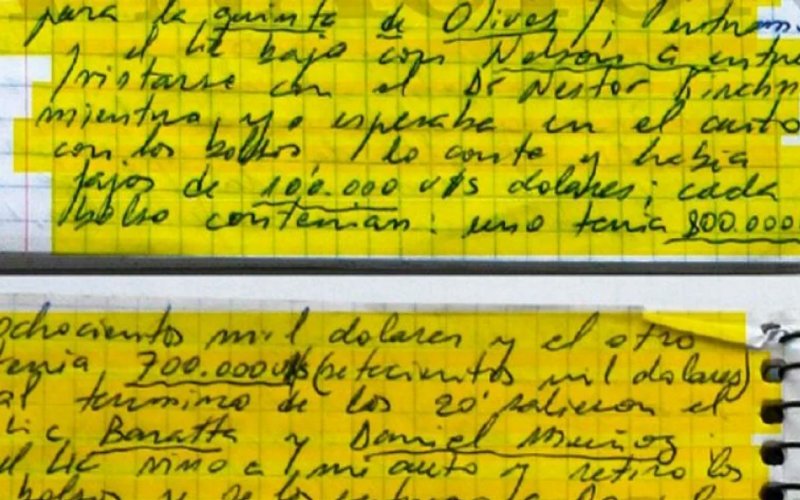 para la quinta de Olivos /; entramos
y el Lic bajo con Nelson a entre
/vistarse con el Dr Nestor Kirchn
mientras, yo esperaba en el auto
con los bolsos, / lo conte y habia
fajos de 100.000 u$s dolares; cada
bolso contenian: uno tenia 800.000
ochocientos mil dolares y el otro
tenia 700.000u$s (setecientos mil dolares)
al termino de los 20' salieron el
Lic Baratta y Daniel Muñoz
el Lic vino a mi auto y retiro los
bolsos y se los